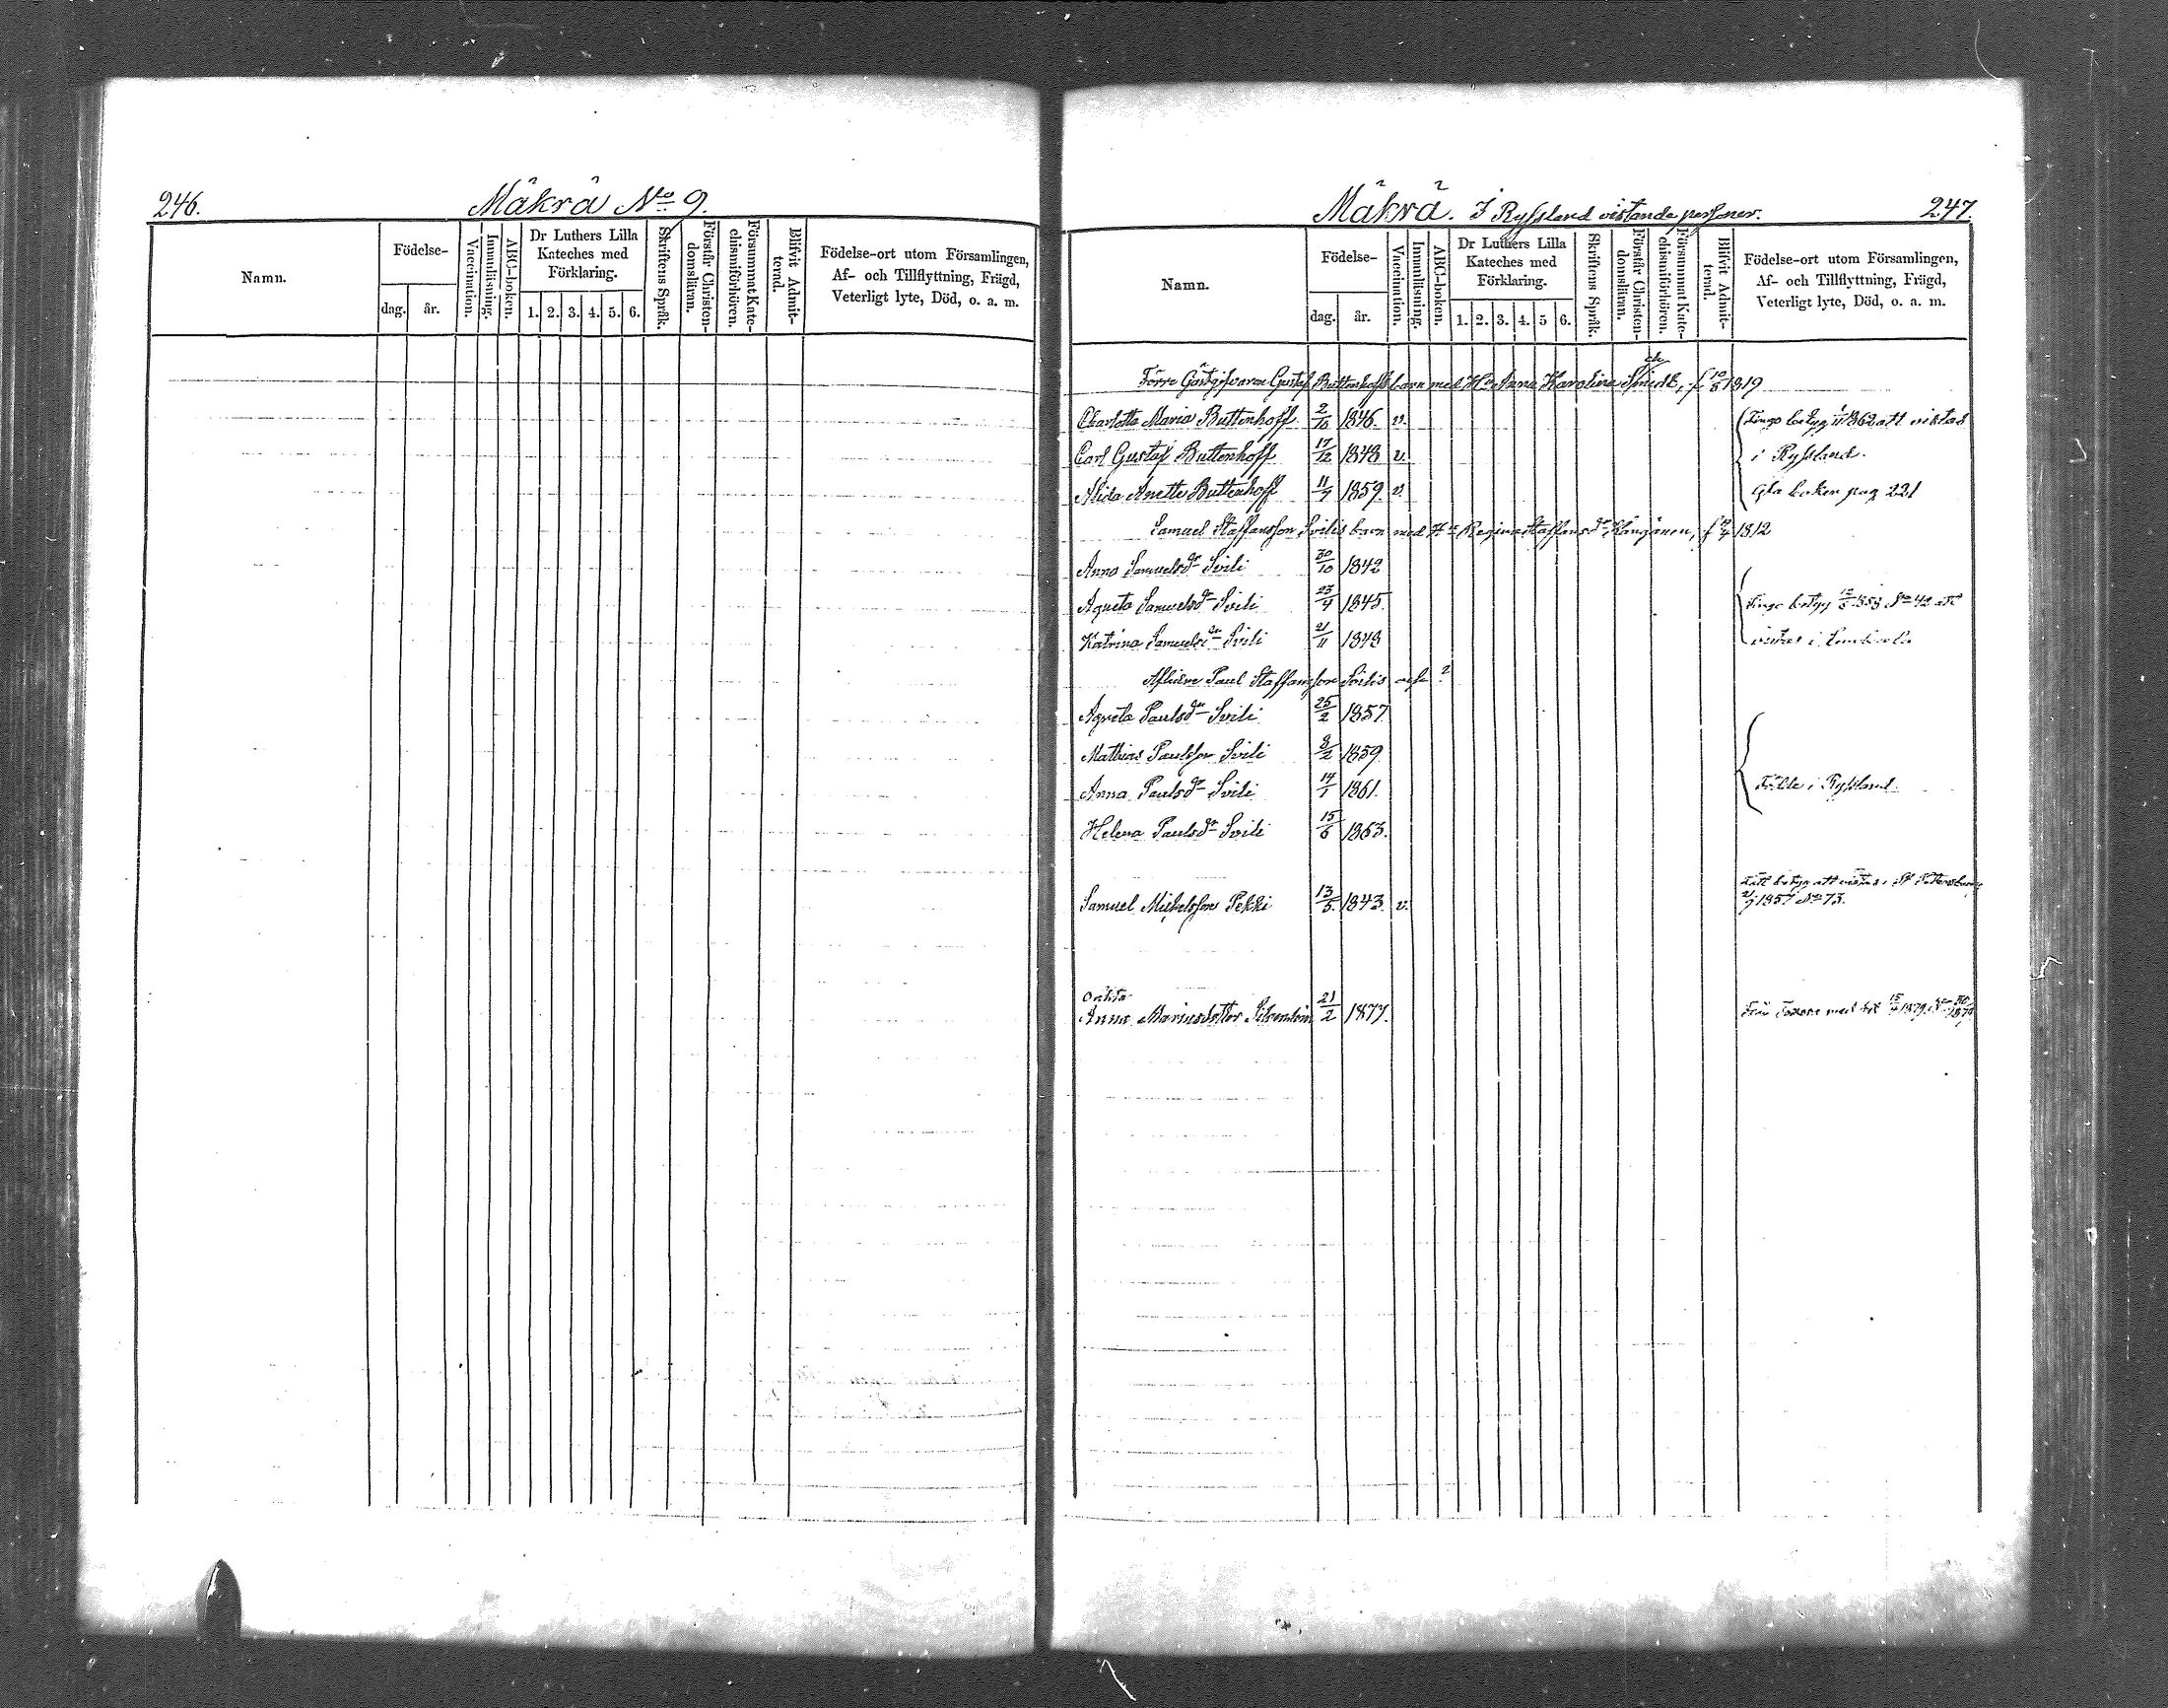 246.
Mäkrä No 9.
Namn.
Födelse-
dag. år.
Vaccination.
Innanläsning.
ABC-boken.
Dr Luthers Lilla
Kateches med
Förklaring.
1. 2. 3. 4. 5. 6.
Skriftens Språk.
Förstår Christen-
domsläran.
Försummat Kate-
chismiförhören.
Blifvit Admit-
terad.
Födelse-ort utom Församlingen,
Af- och Tillflyttning, Frägd,
Veterligt lyte, Död, o. a. m.
Mäkrä. I Ryssland vistande personer.
247.
Namn.
Födelse-
dag. år.
Vaccination.
Innanläsning.
ABC-boken.
Dr Luthers Lilla
Kateches med
Förklaring.
1. 2. 3. 4. 5 6.
Skriftens Språk.
Förstår Christen-
domsläran.
Försummat Kate-
chismiförhören.
Blifvit Admit-
terad.
Födelse-ort utom Församlingen,
Af- och Tillflyttning, Frägd,
Veterligt lyte, Död, o. a. m.
Förre Gästgifvaren Gustaf Buttenhoffs barn med Hu Anna Karolina f 10/8 1819
Charlotta Maria Buttenhoff 2/10 1846. v. Fingo betyg 1862 att vistas
Carl Gustaf Buttenhoff 17/12 1848 v. i Ryssland.
Alida Anette Buttenhoff 11/7 1859. v. Gla boken pag 221
Samuel Staffansson Soilis barn med Hu Regina Staffansdr f 1812
Anna Samuelsdr Soili 30/10 1842
Agneta Samuelsdr Soili 23/4 1845. Fingo betyg No 42 att
Katrina Samuelsdr Soili 21/11 1848 vistas i
Aflidne Paul Staffansson Soilis och ?
Agneta Paulsdr Soili 25/2 1857
Mathias Paulsson Soili 8/2 1859.
Anna Paulsdr Soili 14/1 1861. Födde i Ryssland.
Helena Paulsdr Soili 15/6 1863.
Samuel Mickelsson Pekki 13/5. 1843. v. Fått betyg att vistas i St Petersburg
1857 No 73.
Oäkta
Anna Mariasdotter 21/2 1877. Från med bet 1879